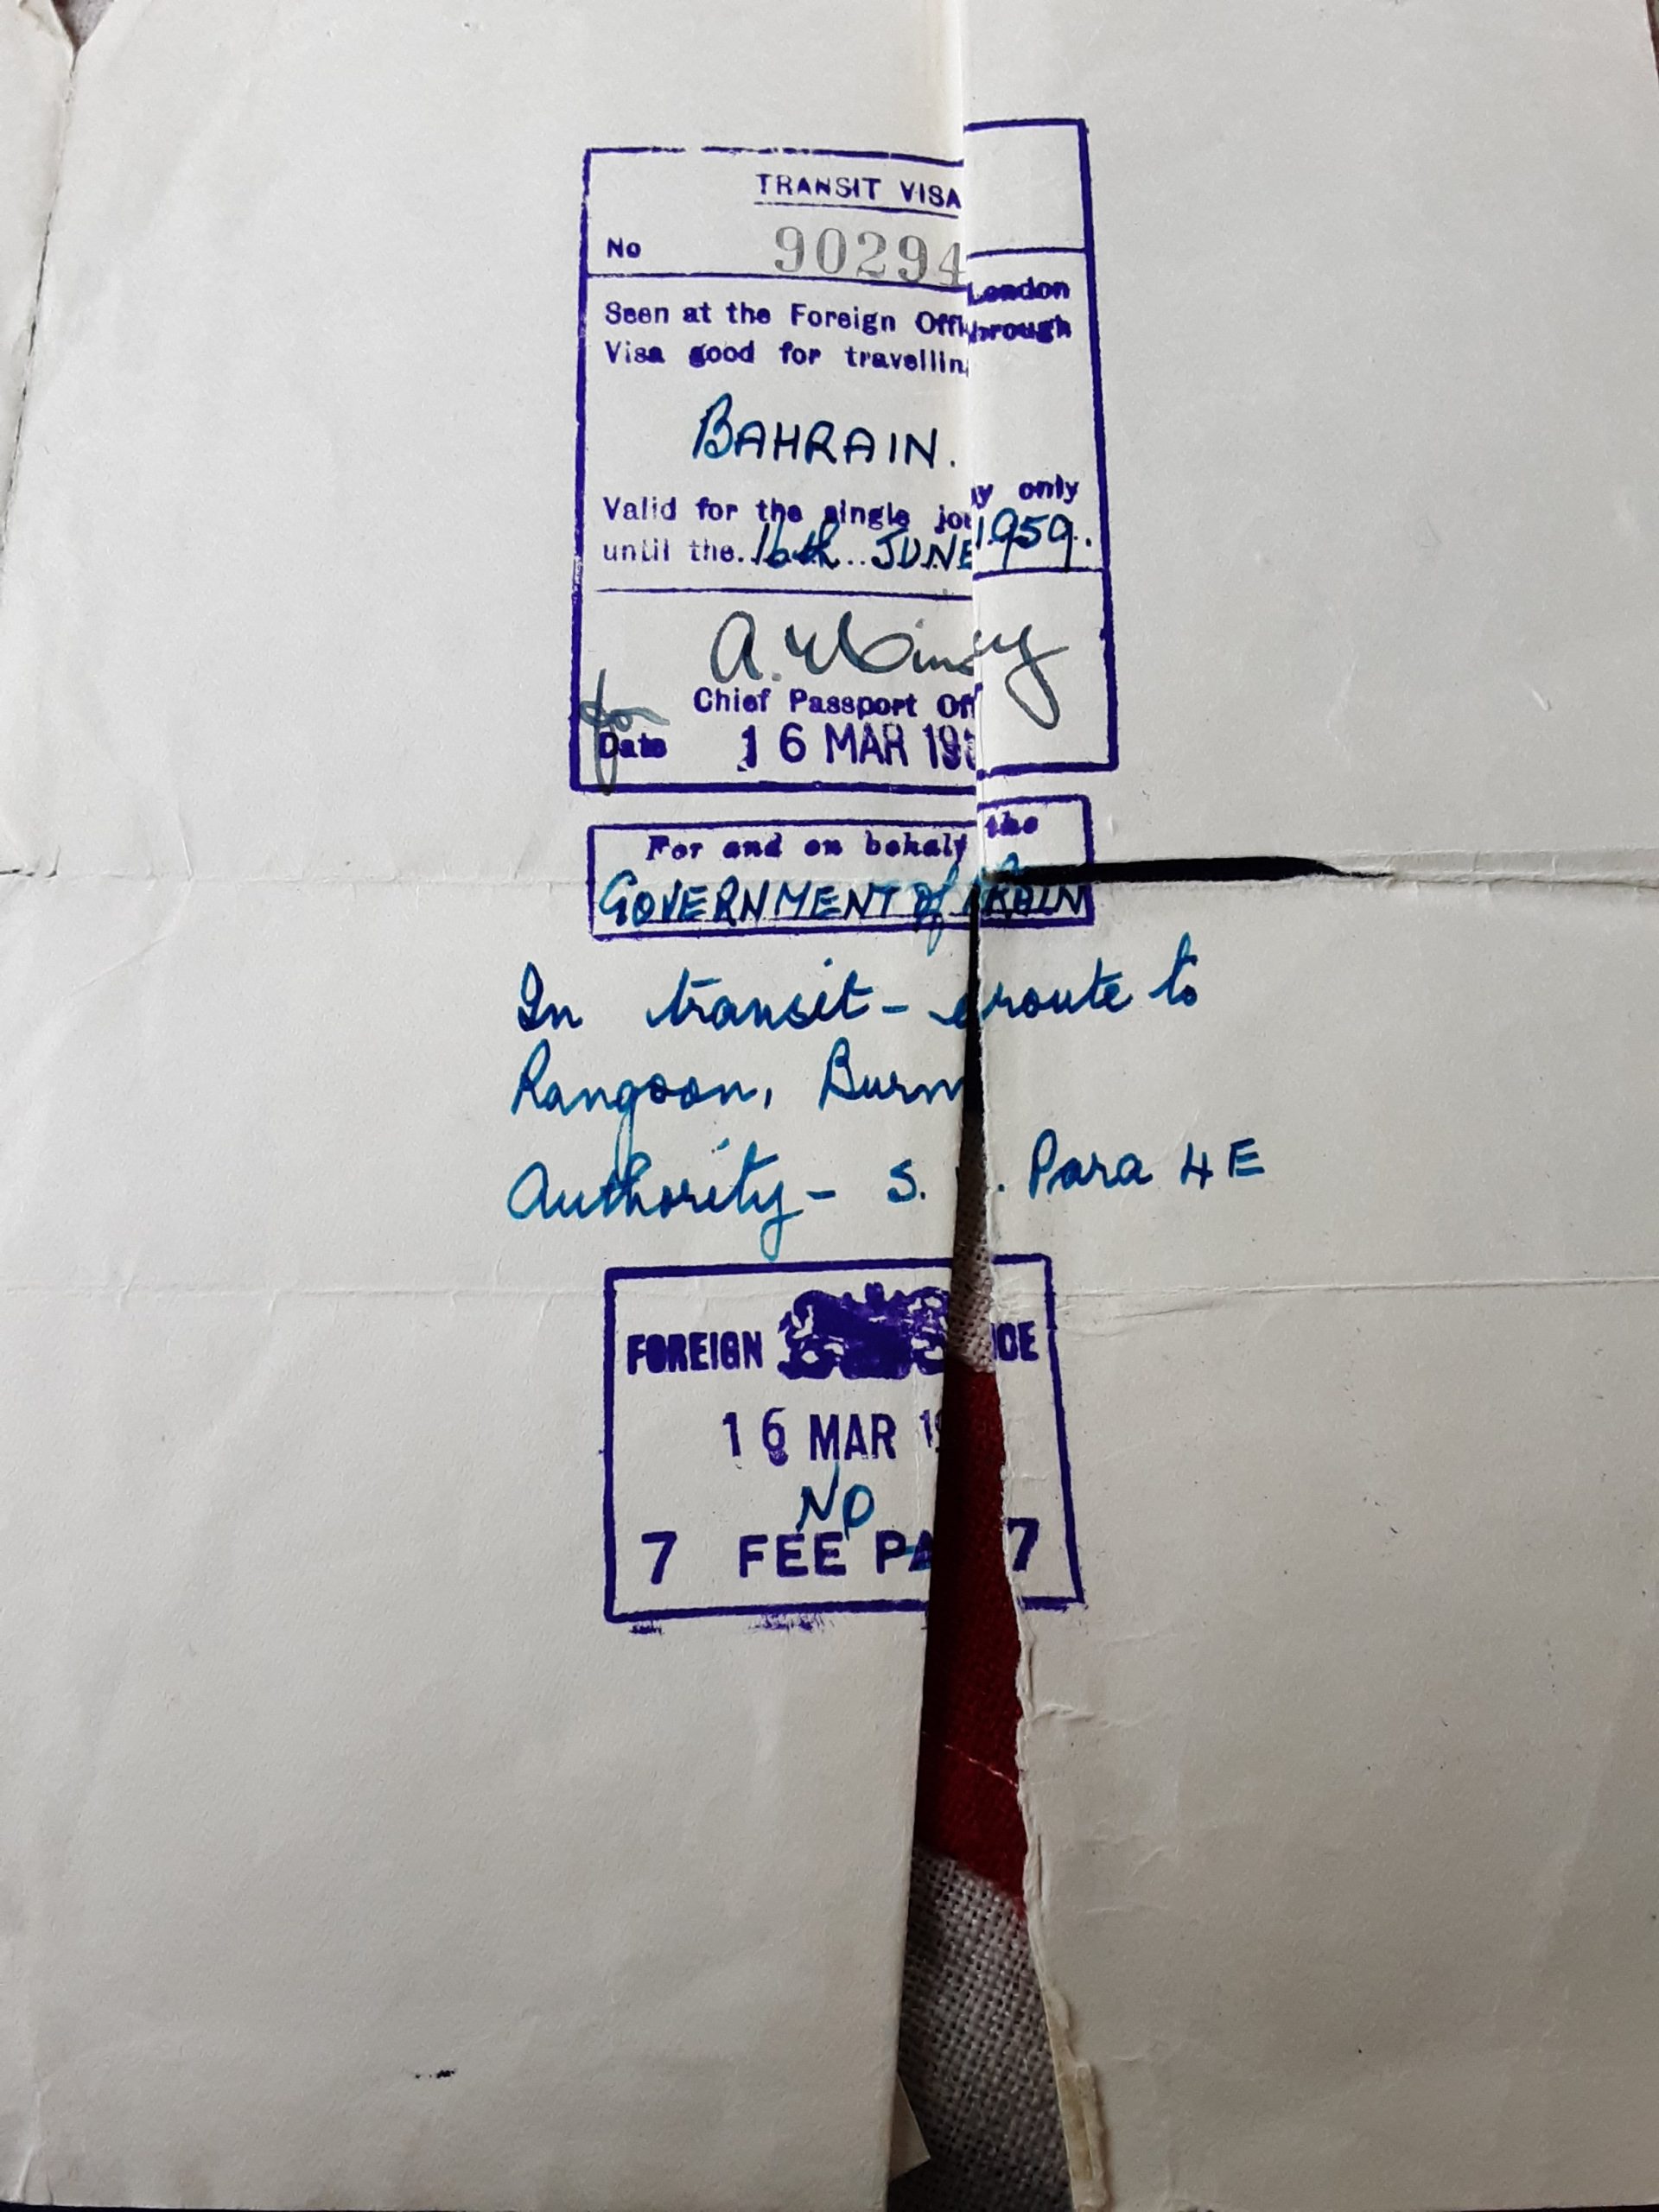 TRANSIT VISA
No 90294
Seen at the Foreign Offi London
Visa good for travellin hrough
BAHRAIN.
Valid for the single jou y only
until the. 16th JUNE 1959.
for
Chief Passport Off
Date 16 MAR 195
For and on behalf the
GOVERNMENT of RAIN
In transit - enroute to
Rangoon, Burm
Authority - S. . Para 4E
FOREIGN ICE
16 MAR 19
NO
7 FEE PA 7